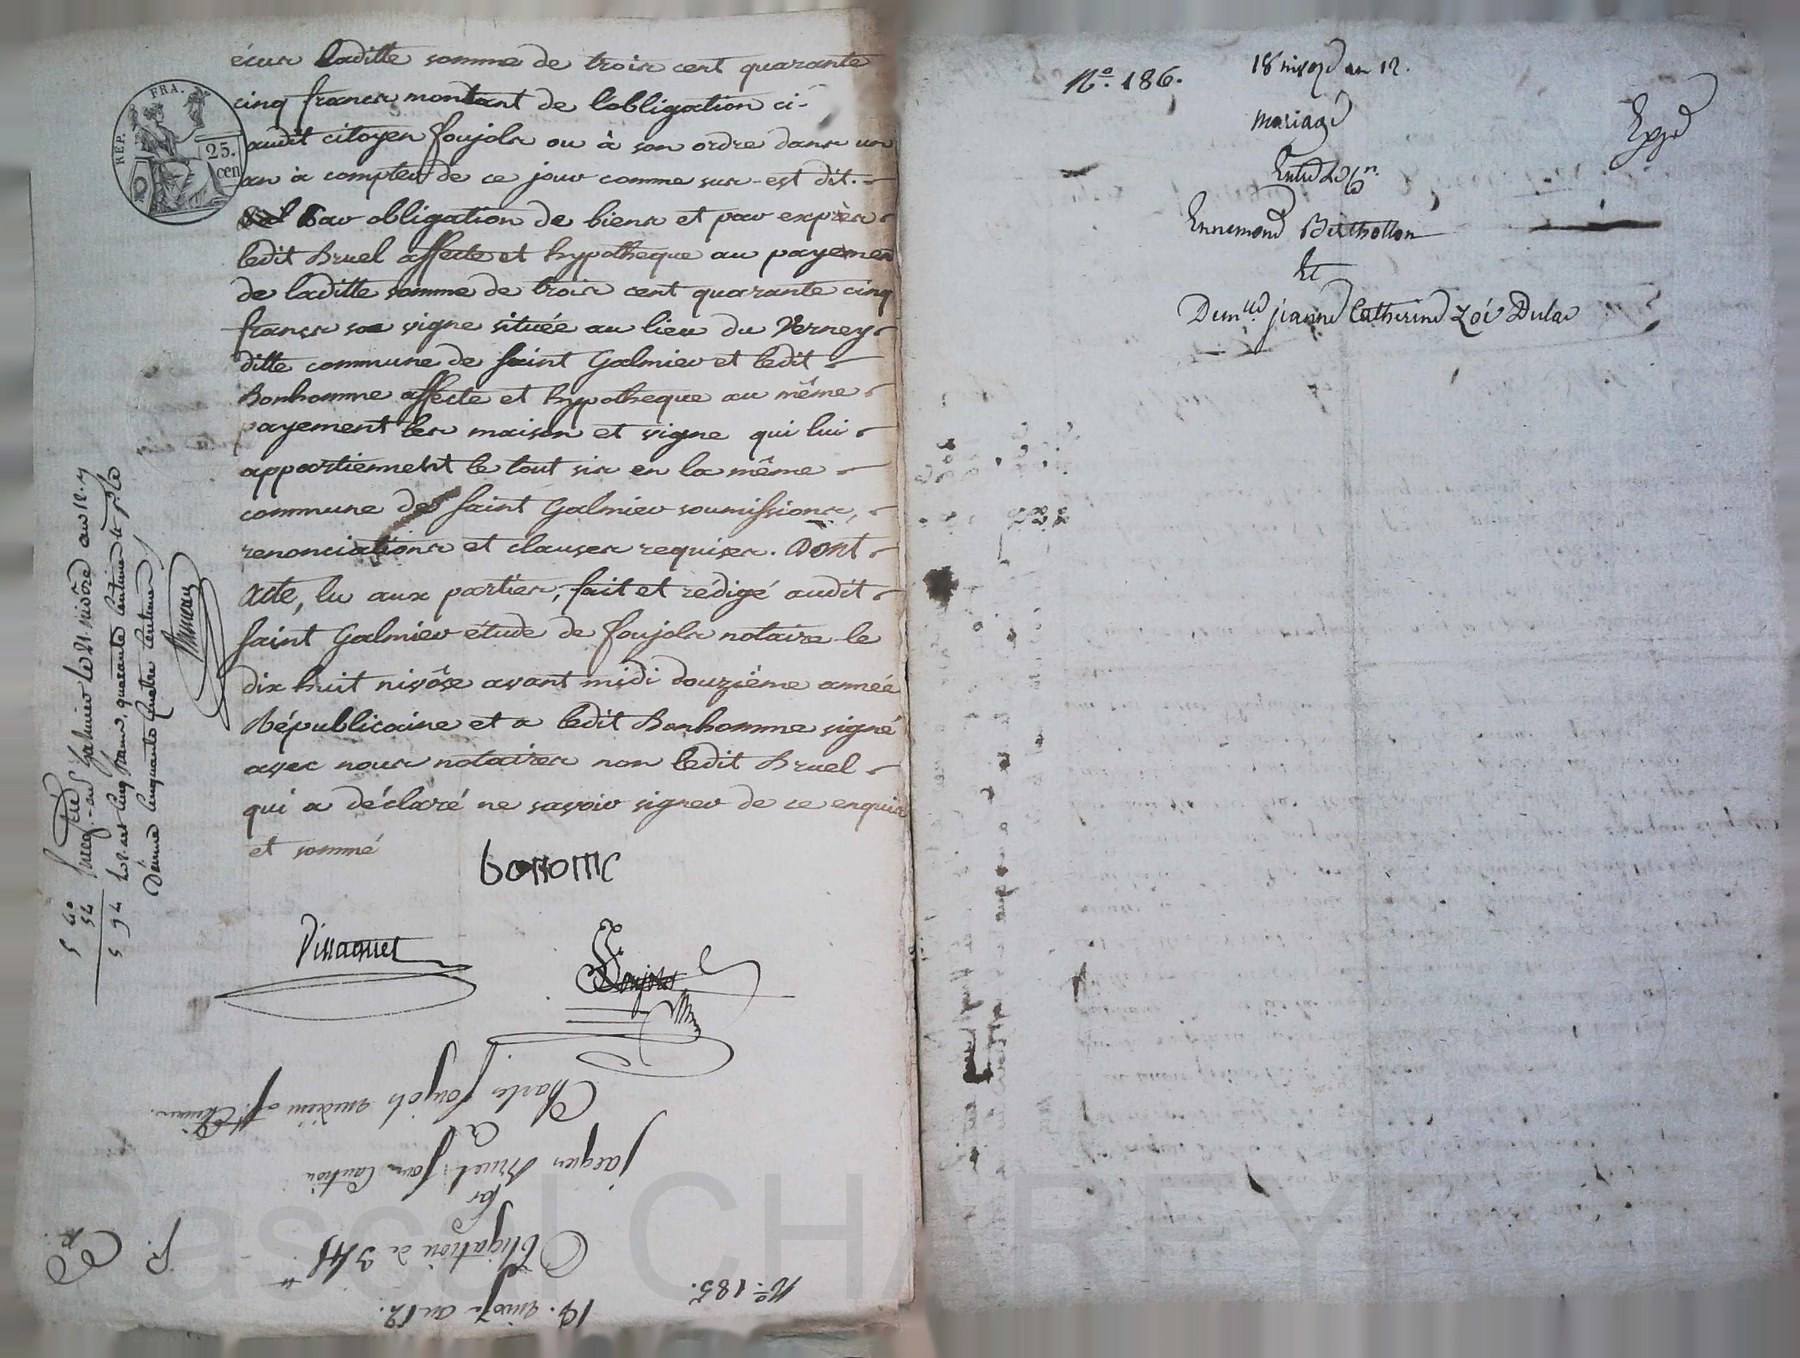 écus laditte somme de trois cent quarante
cinq francs montant de l'obligation ci-
audit citoyen foujols ou à son ordre dans un
an à compter de ce jour comme sus-est dit.
Par obligation de biens et par exprès
ledit Bruel affecte et hypotheque au payemen
de laditte somme de trois cent quarante cinq
francs sa vigne située au lieu du Verney
ditte commune de Saint Galmier et ledit
Bonhomme affecte et hypotheque au même
payement les maison et vigne qui lui
appartiennent le tout sis en la même
commune de Saint Galmier soumissions,
renonciations et clauses requises. Dont
acte, lu aux parties, fait et rédigé audit
Saint Galmier étude de foujols notaire le
dix huit nivôse avant midi douzième année
Républicaine et a ledit Bonhomme signé
avec nous notaires non ledit Bruel
qui a déclaré ne savoir signer de ce enquis
et sommé
bonome
Vissaguet
Foujols
REP. FRA.
25.
cen
galmier le 21 nivôse an 12
cinq francs quarante centimes
cinquante quatre centimes
5 40
54
5 94
N.° 185.
18. nivoz an 12.
Obligation de 345
Par
Jacques Bruel sous Caution
A
Charles foujols
N.° 186.
18 nivoze an 12.
Mariage
Entre Le Cn.
Ennemond Berthollon
Et
Demlle Jeanne Catherine Zoé Dulac
Expé
Pascal CHAREYRE